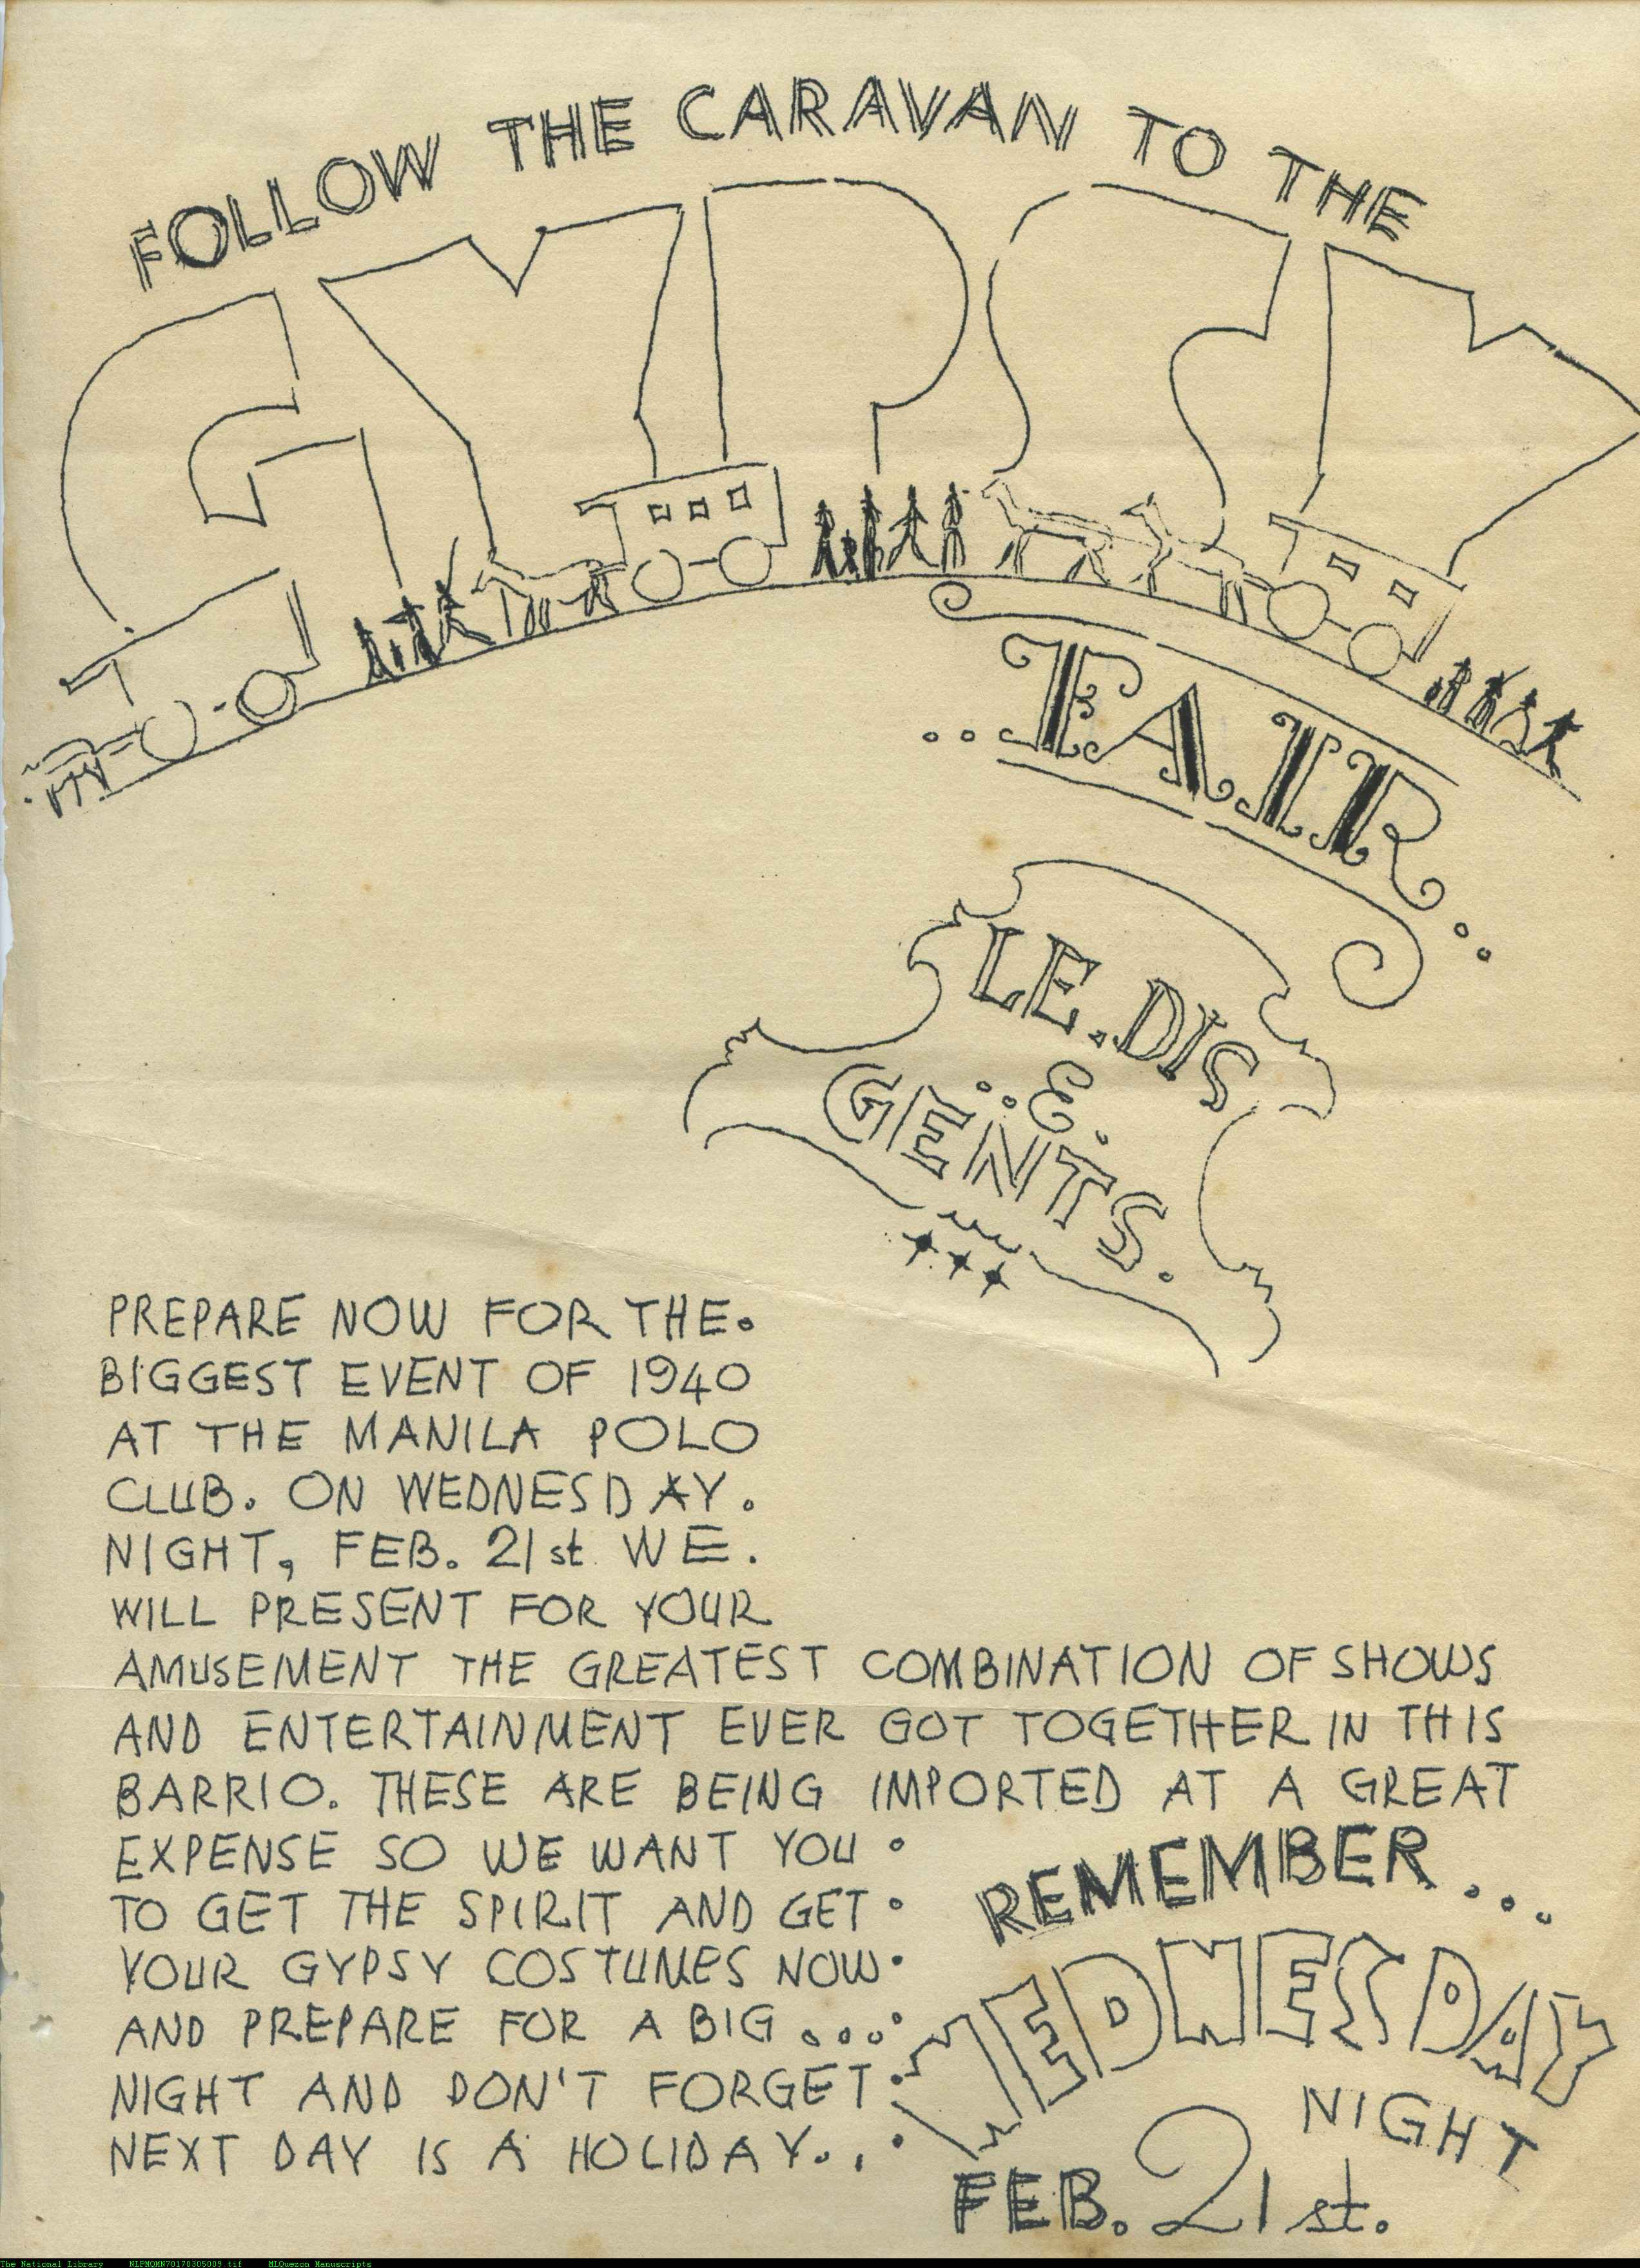 FOLLOW THE CARAVAN TO THE
GYPSY
..FAIR..
LE.DIS
..&.
GENTS.
PREPARE NOW FOR THE.
BIGGEST EVENT OF 1940
AT THE MANILA POLO
CLUB. ON WEDNESDAY.
NIGHT, FEB. 21st WE.
WILL PRESENT FOR YOUR
AMUSEMENT THE GREATEST COMBINATION OF SHOWS
AND ENTERTAINMENT EVER GOT TOGETHER IN THIS
BARRIO. THESE ARE BEING IMPORTED AT A GREAT
EXPENSE SO WE WANT YOU
TO GET THE SPIRIT AND GET
YOUR GYPSY COSTUMES NOW
AND PREPARE FOR A BIG ...
NIGHT AND DON'T FORGET
NEXT DAY IS A HOLIDAY..
REMEMBER...
WEDNESDAY
NIGHT
FEB. 21st.
The National Library NLPMQMN70170305009.tif MLQuezon Manuscripts